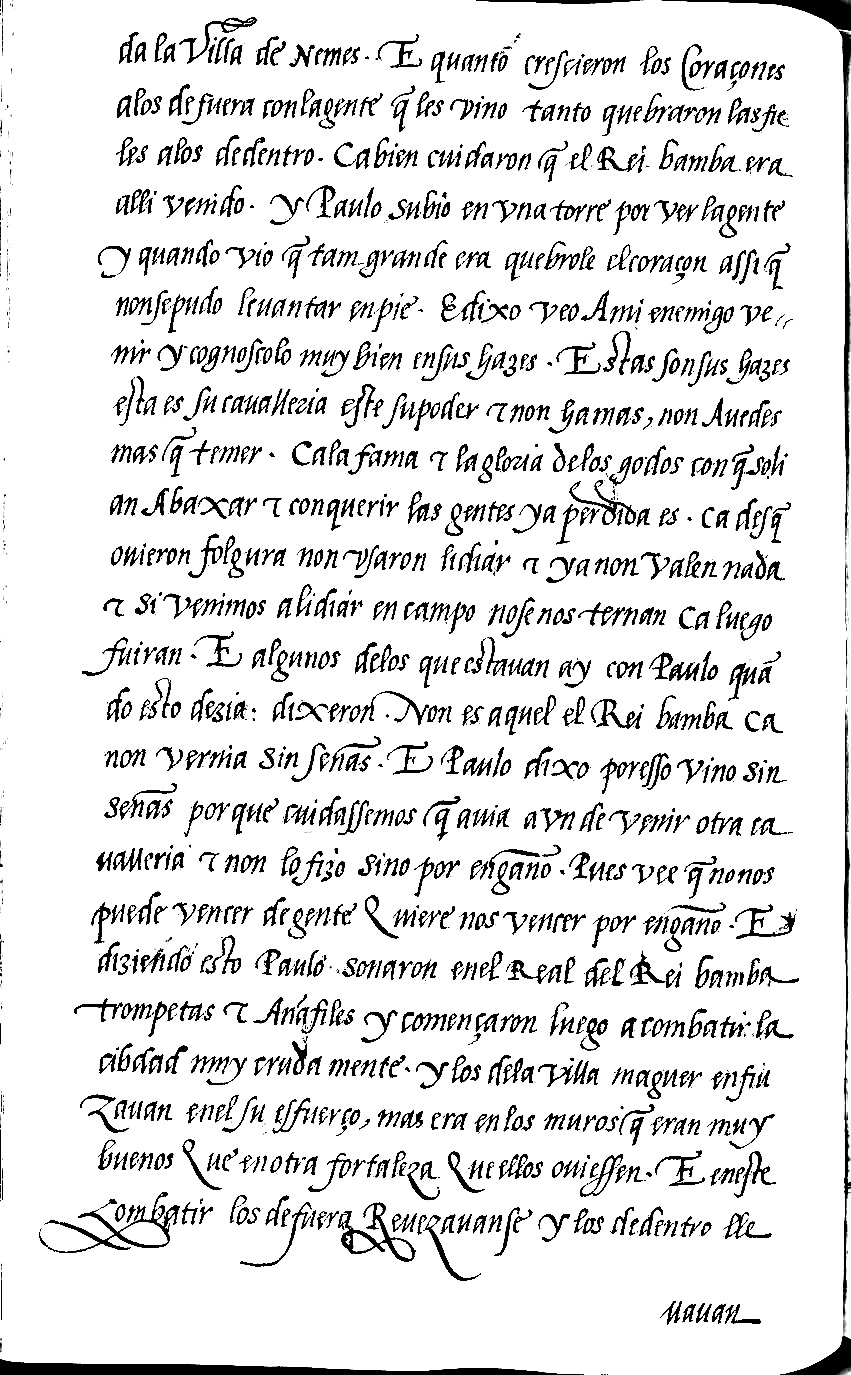 da la Villa de Nemes. E quantō crescieron los Coraçones
alos de fuera con la gente q̄ les vino tanto quebraron las fie
les alos de dentro. Ca bien cuidaron q̄ el Rei bamba era
alli venido. y Paulo subio en vna torre por ver la gente
y quando vio q̄ tam grande era quebrole el coraçon assi q̄
non se pudo leuantar en pie. E dixo veo Ami enemigo ve,,
nir y cognoscolo muy bien en sus hazes. Estas son sus hazes
esta es su caualleria este su poder τ non ha mas, non Auedes
mas q̄ temer. Ca la fama τ la gloria de los godos con q̄ soli
an Abaxar τ conquerir las gentes ya perdida es. ca desq̄
ouieron folgura non vsaron lidiár τ ya non valen nada
τ si venimos a lidiár en campo no se nos ternan ca luego
fuiran. E algunos delos que estauan ay con Paulo quā
do esto dezia: dixeron. Non es aquel el Rei bamba ca
non vernia sin señas. E Paulo dixo por esso vino sin
señas por que cuidassemos q̄ auia avn de venir otra ca
ualleria τ non lo fizo sino por engaño. Pues vee q̄ no nos
puede vencer de gente Quiere nos vencer por engaño. E
diziendo esto Paulo sonaron enel Real del Rei bamba
trompetas τ Anáfiles y començaron luego a combatir la
cibdad muy cruda mente. y los dela villa maguer enfiu
zauan enel su esfuerço, mas era en los muros q̄ eran muy
buenos Que en otra fortaleza Que ellos ouiessen. E en este
Combatir los de fuera Reuezauanse y los de dentro lle
uauan